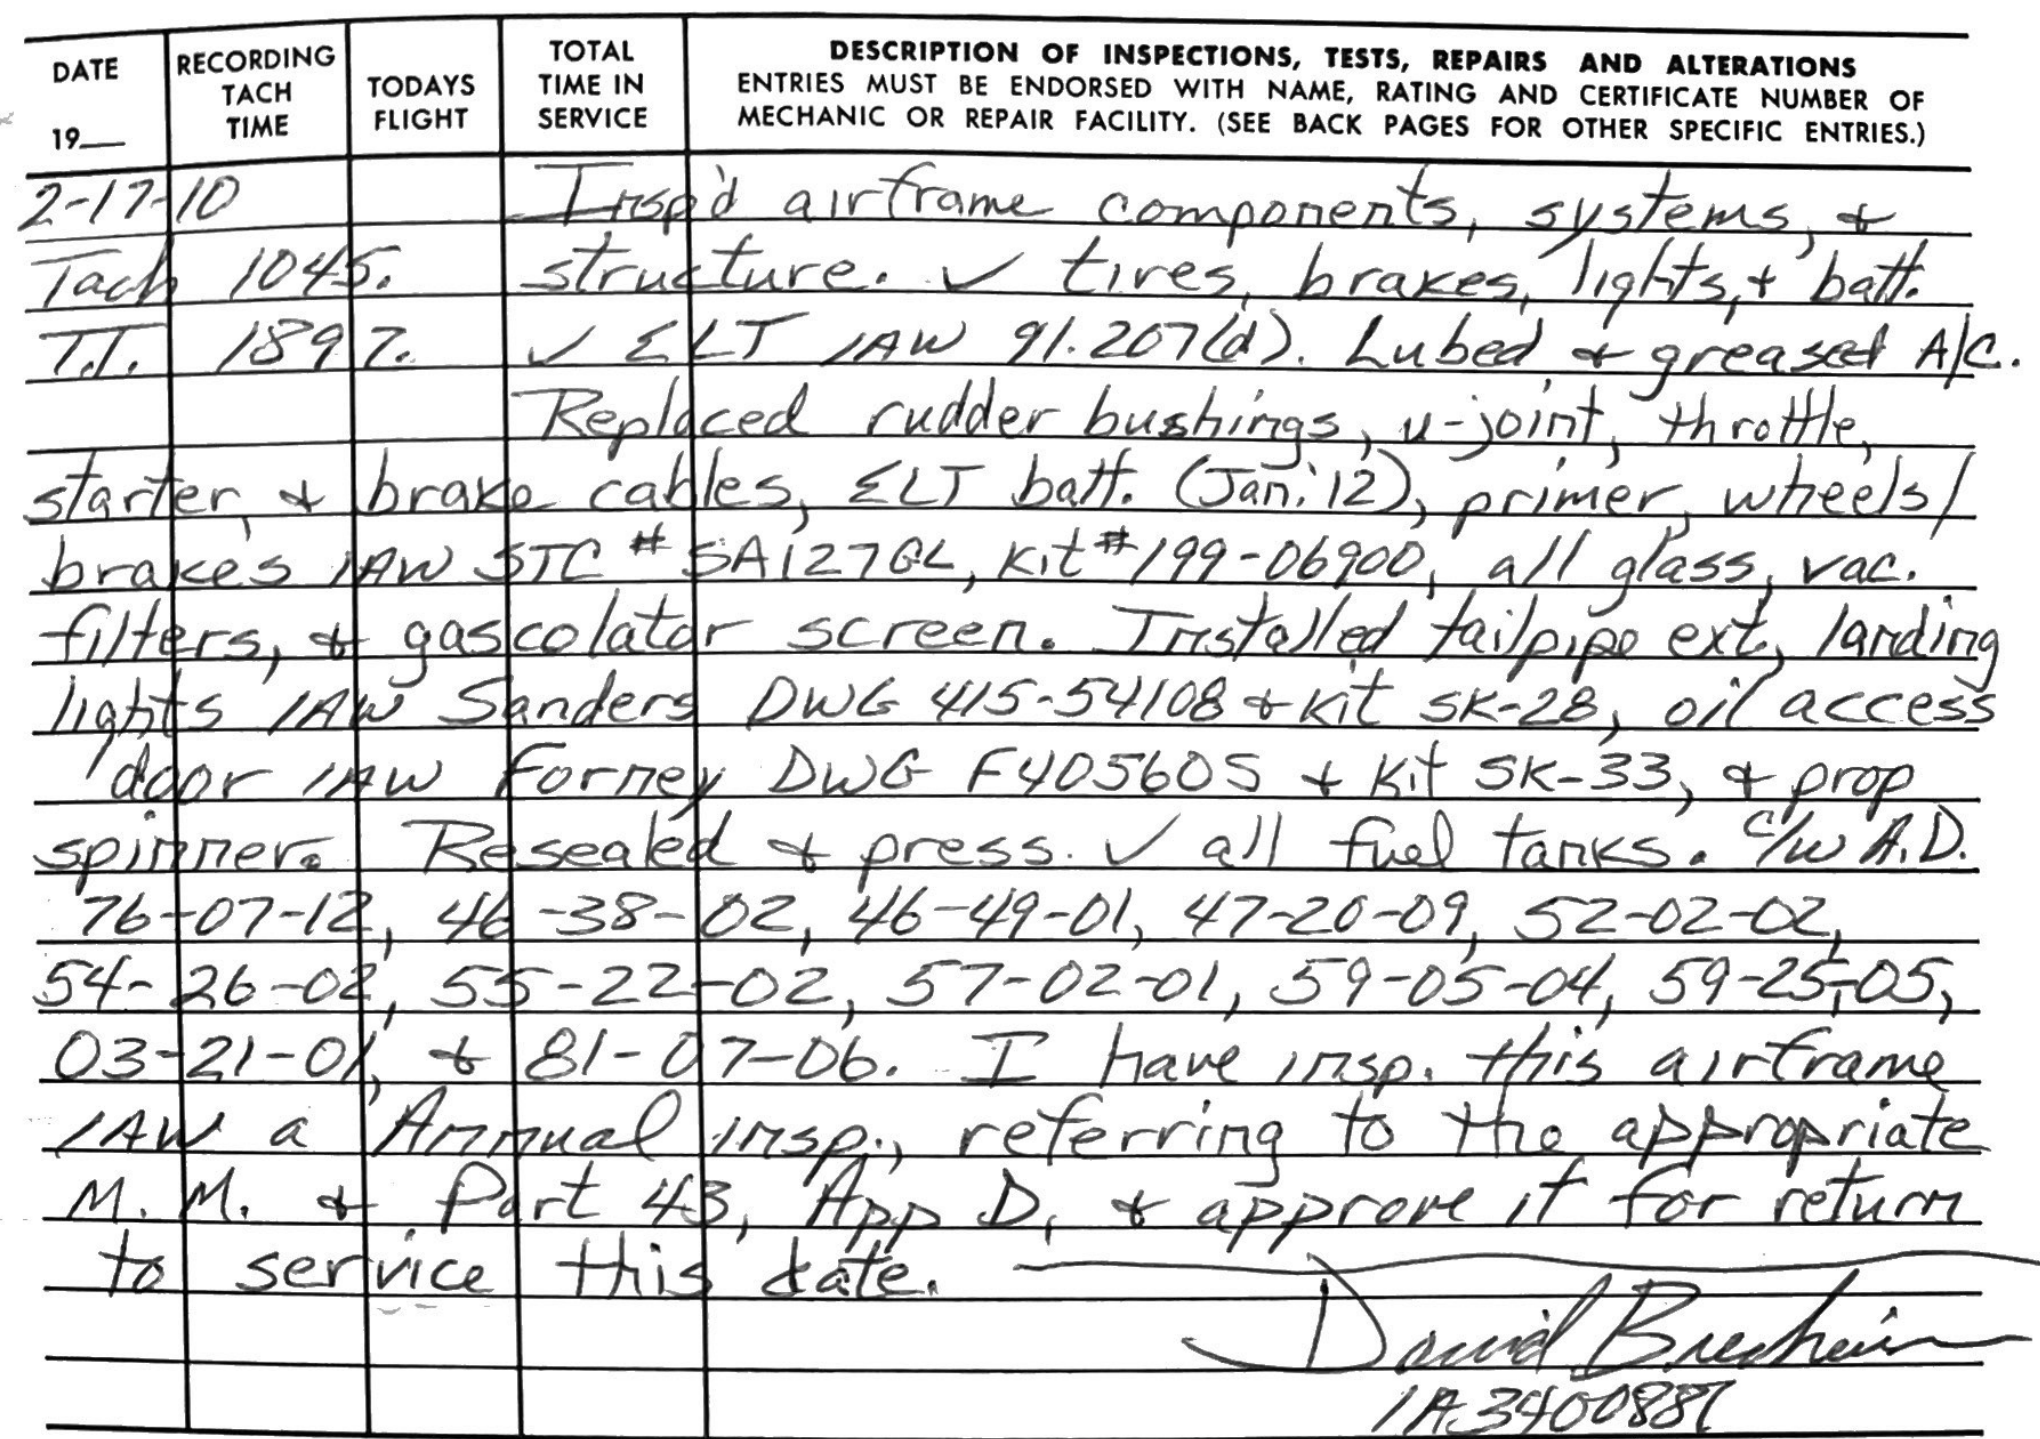 DATE 19__ RECORDING TACH TIME TODAYS FLIGHT TOTAL TIME IN SERVICE
DESCRIPTION OF INSPECTIONS, TESTS, REPAIRS AND ALTERATIONS
ENTRIES MUST BE ENDORSED WITH NAME, RATING AND CERTIFICATE NUMBER OF
MECHANIC OR REPAIR FACILITY. (SEE BACK PAGES FOR OTHER SPECIFIC ENTRIES.)
2-17-10 Insp'd airframe components, systems, &
Tach 1045. structure. ✓ tires, brakes, lights, + batt.
T.T. 1897. ✓ ELT IAW 91.207(d). Lubed & greased A/C.
Replaced rudder bushings, u-joint, throttle,
starter, & brake cables, ELT batt. (Jan. '12), primer, wheels/
brakes IAW STC # SA127GL, Kit # 199-06900, all glass, vac.
filters, & gascolator screen. Installed tailpipe ext, landing
lights IAW Sanders DWG 415-54108 & Kit SK-28, oil access
door IAW Forney DWG F40560S + Kit SK-33, & prop
spinner. Resealed & press. ✓ all fuel tanks. C/W A.D.
76-07-12, 46-38-02, 46-49-01, 47-20-09, 52-02-02,
54-26-02, 55-22-02, 57-02-01, 59-05-04, 59-25-05,
03-21-01, & 81-07-06. I have insp. this airframe
IAW a Annual insp., referring to the appropriate
M.M. & Part 43, App D, & approve it for return
to service this date.
David
IA